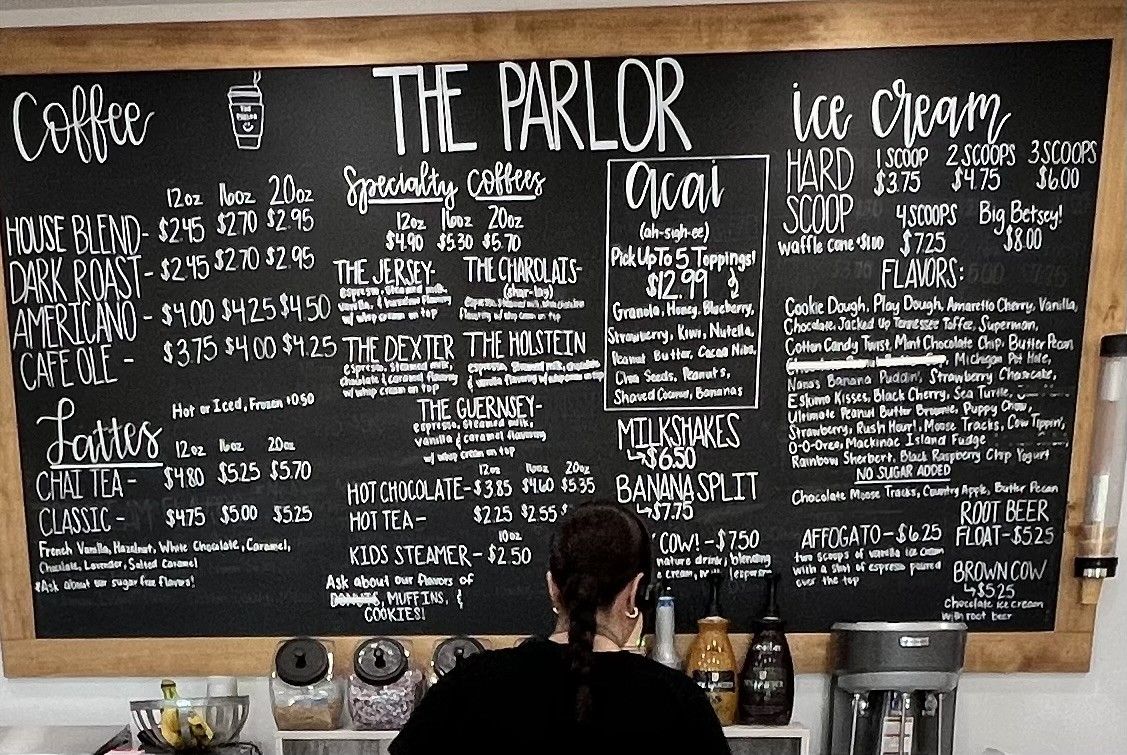 THE PARLOR
Coffee
12oz 16oz 20oz
HOUSE BLEND- $2.45 $2.70 $2.95
DARK ROAST- $2.45 $2.70 $2.95
AMERICANO- $4.00 $4.25 $4.50
CAFE OLE- $3.75 $4.00 $4.25
Hot or Iced, Frozen +0.50
Lattes
12oz 16oz 20oz
CHAI TEA- $4.80 $5.25 $5.70
CLASSIC- $4.75 $5.00 $5.25
French Vanilla, Hazelnut, White Chocolate, Caramel,
Chocolate, Lavender, Salted Caramel
*Ask about our sugar free flavors!
Specialty Coffees
12oz 16oz 20oz
$4.90 $5.30 $5.70
THE JERSEY-
espresso, steamed milk,
w/ whip cream on top
THE CHAROLAIS-
(shar-lay)
THE DEXTER
espresso, steamed milk,
chocolate & caramel flavoring
w/ whip cream on top
THE HOLSTEIN
THE GUERNSEY-
espresso, steamed milk,
vanilla & caramel flavoring
w/ whip cream on top
12oz 16oz 20oz
HOT CHOCOLATE- $3.85 $4.60 $5.35
HOT TEA- $2.25 $2.55 $
10oz
KIDS STEAMER- $2.50
Ask about our flavors of
DONUTS, MUFFINS, &
COOKIES!
acai
(ah-sigh-ee)
Pick Up To 5 Toppings!
$12.99
Granola, Honey, Blueberry,
Strawberry, Kiwi, Nutella,
Peanut Butter, Cacao Nibs,
Chia Seeds, Peanuts,
Shaved Coconut, Bananas
MILKSHAKES
$6.50
BANANA SPLIT
$7.75
COW!- $7.50
nature drink, blending
ice cream
HARD SCOOP
1 SCOOP 2 SCOOPS 3 SCOOPS
$3.75 $4.75 $6.00
4 SCOOPS Big Betsey!
waffle cone +$1.00 $7.25 $8.00
FLAVORS:
Cookie Dough, Play Dough, Amaretto Cherry, Vanilla,
Chocolate, Jacked Up Tennessee Toffee, Superman,
Cotton Candy Twist, Mint Chocolate Chip, Butter Pecan
Michigan Pot Hole,
Nana's Banana Puddin', Strawberry Cheesecake,
Eskimo Kisses, Black Cherry, Sea Turtle,
Ultimate Peanut Butter Brownie, Puppy Chow,
Strawberry, Rush Hour!, Moose Tracks, Cow Tippin',
O-O-Oreo, Mackinac Island Fudge
Rainbow Sherbert, Black Raspberry Chip Yogurt
NO SUGAR ADDED
Chocolate Moose Tracks, Country Apple, Butter Pecan
AFFOGATO- $6.25
two scoops of vanilla ice cream
with a shot of espresso poured
over the top
ROOT BEER
FLOAT- $5.25
BROWN COW
$5.25
Chocolate ice cream
with root beer